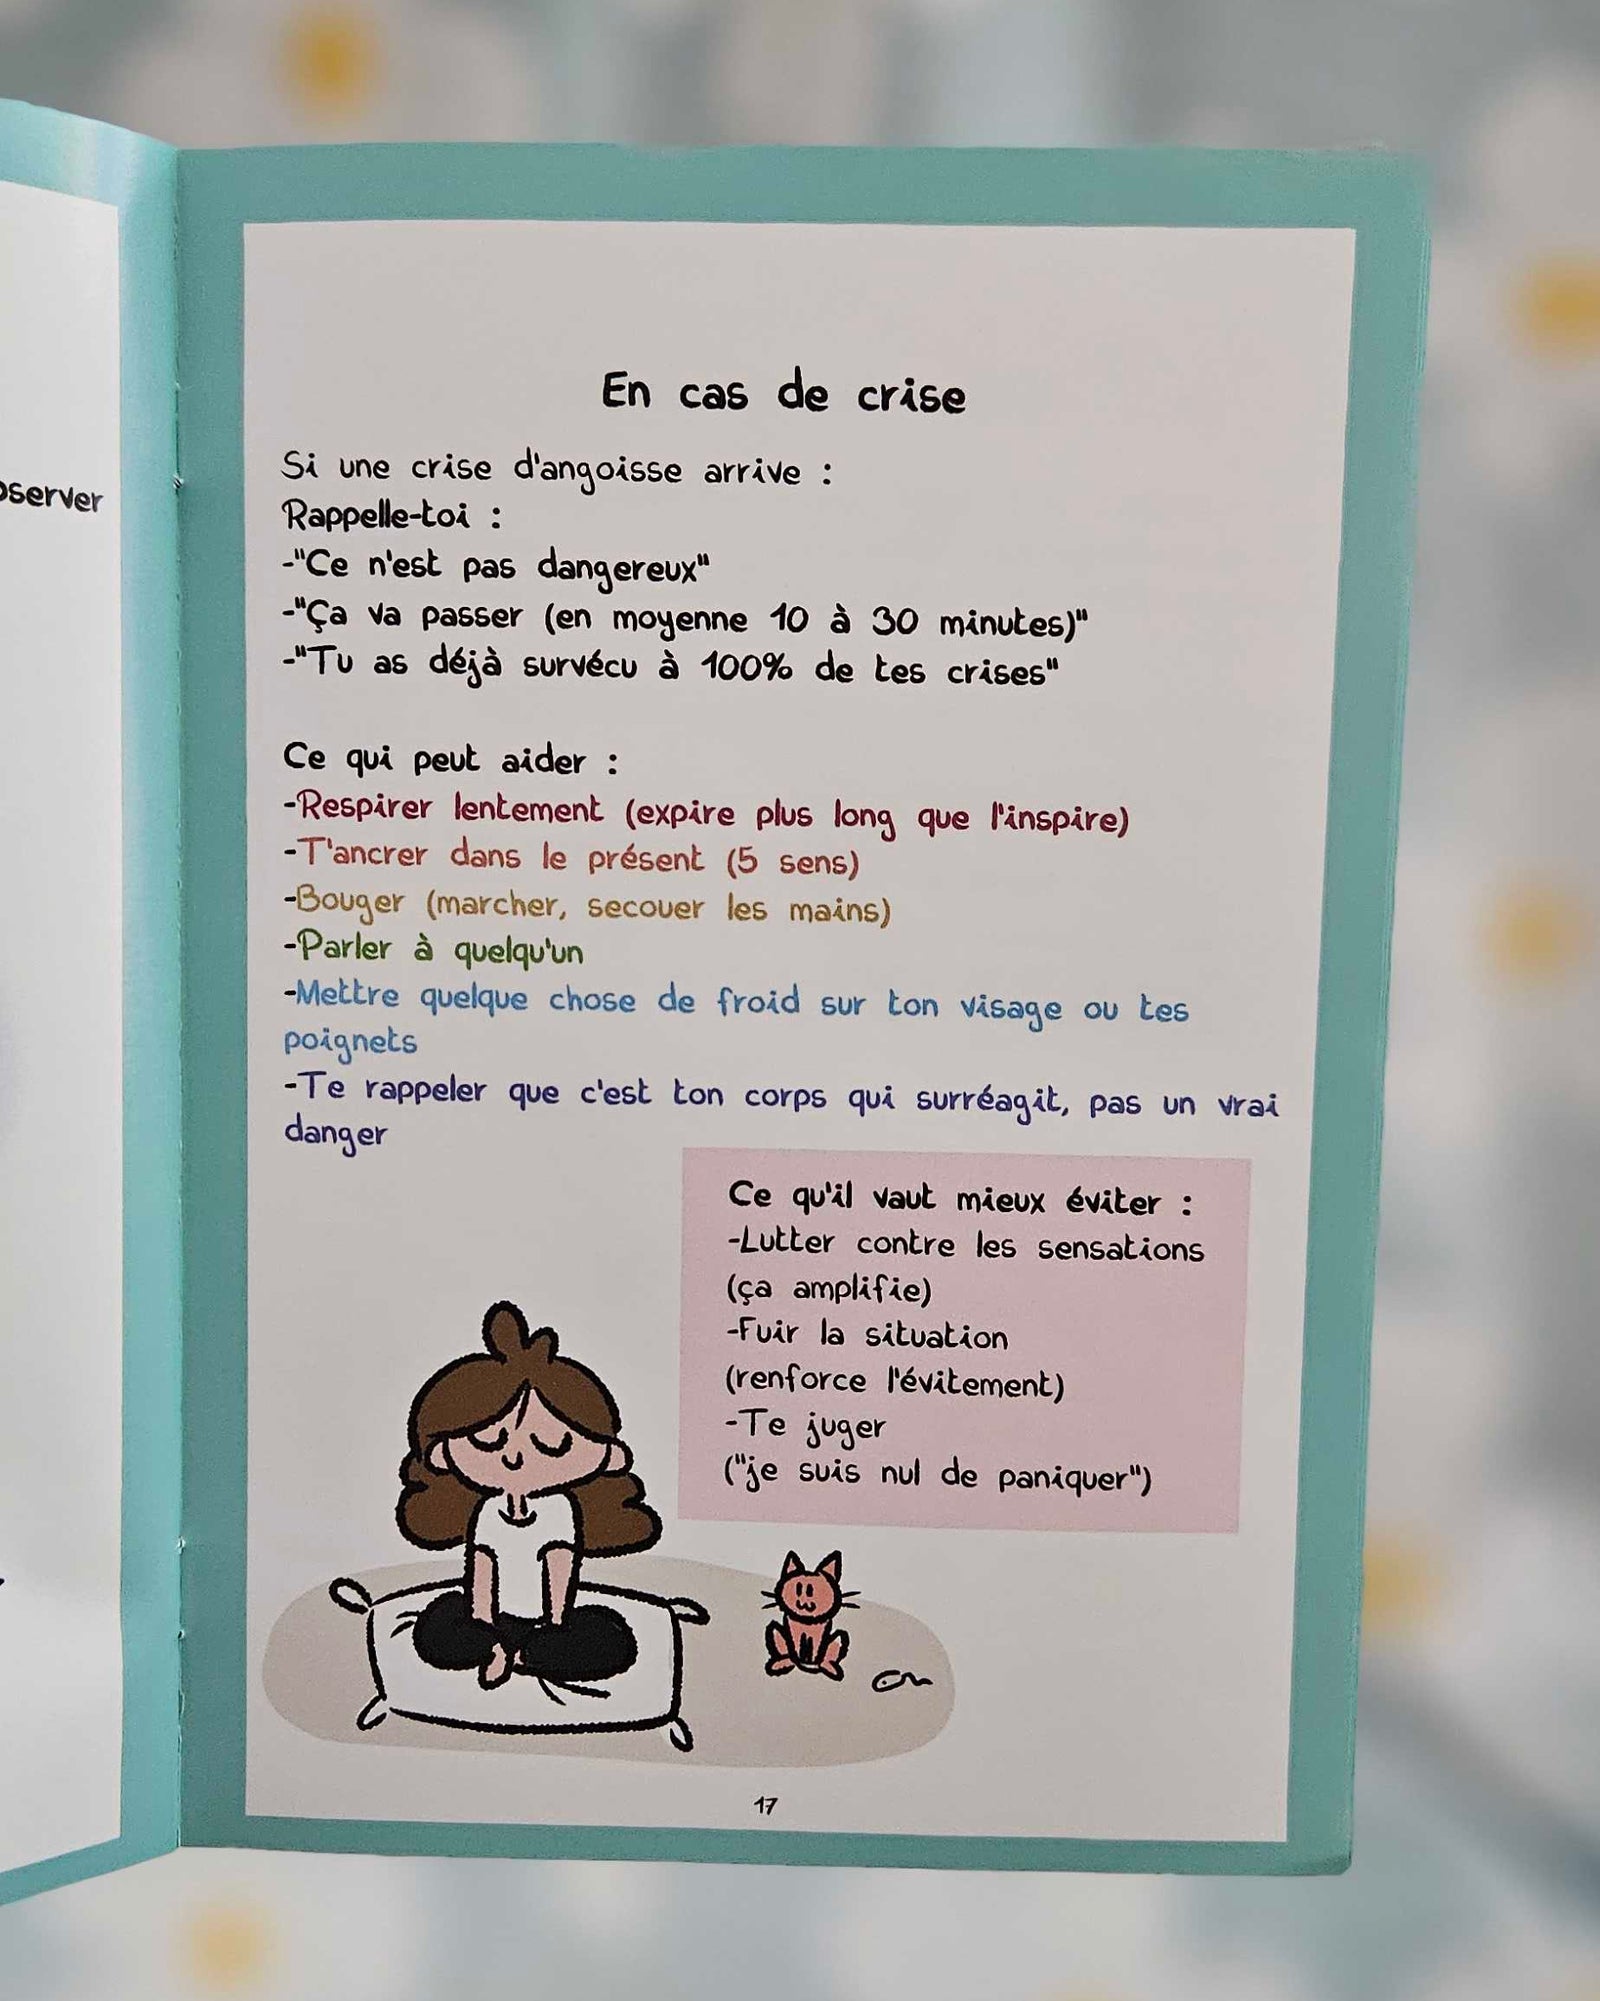 En cas de crise
Si une crise d'angoisse arrive :
Rappelle-toi :
-"Ce n'est pas dangereux"
-"Ça va passer (en moyenne 10 à 30 minutes)"
-"Tu as déjà survécu à 100% de tes crises"
Ce qui peut aider :
-Respirer lentement (expire plus long que l'inspire)
-T'ancrer dans le présent (5 sens)
-Bouger (marcher, secouer les mains)
-Parler à quelqu'un
-Mettre quelque chose de froid sur ton visage ou tes
poignets
-Te rappeler que c'est ton corps qui surréagit, pas un vrai
danger
Ce qu'il vaut mieux éviter :
-Lutter contre les sensations
(ça amplifie)
-Fuir la situation
(renforce l'évitement)
-Te juger
("je suis nul de paniquer")
17